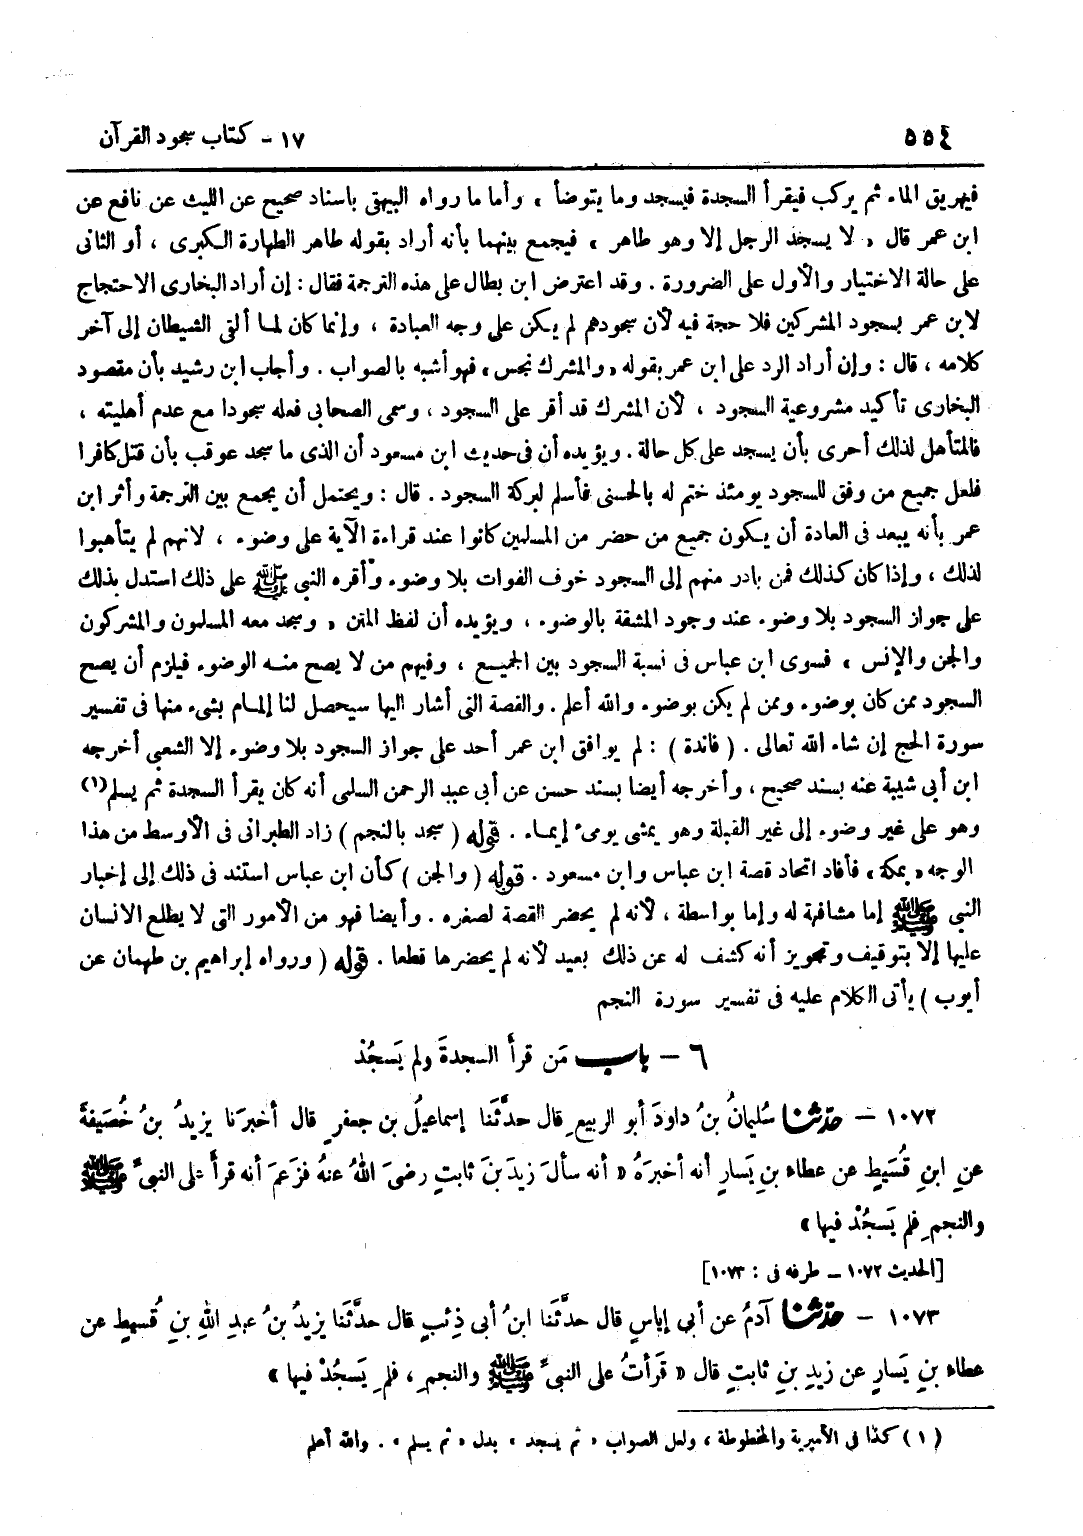 ٥٥٤
١٧ - كتاب سجود القرآن
فيهريق الماء ثم يركب فيقرأ السجدة فيسجد وما يتوضأ » وأما ما رواه البيهقى باسناد صحيح عن الليث عن نافع عن
ابن عمر قال « لا يسجد الرجل إلا وهو طاهر » فيجمع بينهما بأنه أراد بقوله طاهر الطهارة الكبرى ، أو الثانى
على حالة الاختيار والأول على الضرورة . وقد اعترض ابن بطال على هذه الترجمة فقال : إن أراد البخارى الاحتجاج
لابن عمر بسجود المشركين فلا حجة فيه لأن سجودهم لم يكن على وجه العبادة ، وإنما كان لما ألقى الشيطان إلى آخر
كلامه ، قال : وإن أراد الرد على ابن عمر بقوله « والمشرك نجس » فهو أشبه بالصواب . وأجاب ابن رشيد بأن مقصود
البخارى تأكيد مشروعية السجود ، لأن المشرك قد أقر على السجود ، وسمى الصحابى فعله سجودا مع عدم أهليته ،
فالمتأهل لذلك أحرى بأن يسجد على كل حالة . ويؤيده أن فى حديث ابن مسعود أن الذى ما سجد عوقب بأن قتل كافرا
فلعل جميع من وفق للسجود يومئذ ختم له بالحسنى فأسلم لبركة السجود . قال : ويحتمل أن يجمع بين الترجمة وأثر ابن
عمر بأنه يبعد فى العادة أن يكون جميع من حضر من المسلمين كانوا عند قراءة الآية على وضوء ، لانهم لم يتأهبوا
لذلك ، وإذا كان كذلك فمن بادر منهم إلى السجود خوف الفوات بلا وضوء وأقره النبى ﷺ على ذلك استدل بذلك
على جواز السجود بلا وضوء عند وجود المشقة بالوضوء ، ويؤيده أن لفظ المتن « وسجد معه المسلمون والمشركون
والجن والإنس » فسوى ابن عباس فى نسبة السجود بين الجميع ، وفيهم من لا يصح منه الوضوء فيلزم أن يصح
السجود ممن كان بوضوء وممن لم يكن بوضوء والله أعلم . والقصة التى أشار اليها سيحصل لنا إلمام بشىء منها فى تفسير
سورة الحج إن شاء الله تعالى . ( فائدة ) : لم يوافق ابن عمر أحد على جواز السجود بلا وضوء إلا الشعبى أخرجه
ابن أبى شيبة عنه بسند صحيح ، وأخرجه أيضا بسند حسن عن أبى عبد الرحمن السلمى أنه كان يقرأ السجدة ثم يسلم(١)
وهو على غير وضوء إلى غير القبلة وهو يمشى يومىء إيماء . قوله ( سجد بالنجم ) زاد الطبرانى فى الأوسط من هذا
الوجه « بمكة » فأفاد اتحاد قصة ابن عباس وابن مسعود . قوله ( والجن ) كأن ابن عباس استند فى ذلك إلى إخبار
النبى ﷺ إما مشافهة له وإما بواسطة ، لأنه لم يحضر القصة لصغره . وأيضا فهو من الأمور التى لا يطلع الانسان
عليها إلا بتوقيف وتجويز أنه كشف له عن ذلك بعيد لأنه لم يحضرها قطعا . قوله ( ورواه إبراهيم بن طهمان عن
أيوب ) يأتى الكلام عليه فى تفسير سورة النجم
٦ - باب مَن قرأَ السجدةَ ولم يَسجُدْ
١٠٧٢ - حدّثنا سُليمانُ بنُ داودَ أبو الربيعِ قال حدَّثَنا إسماعيلُ بن جعفرٍ قال أخبرَنا يزيدُ بنُ خُصَيفةَ
عنِ ابنِ قُسَيطٍ عن عطاء بنِ يَسارٍ أنه أخبرَهُ « أنه سألَ زيدَ بنَ ثابتٍ رضىَ اللهُ عنهُ فزَعمَ أنه قرأَ على النبىِّ ﷺ
والنجمِ فلم يَسجُدْ فيها »
[الحديث ١٠٧٢ - طرفه فى : ١٠٧٣]
١٠٧٣ - حدّثنا آدمُ عن أبى إياسٍ قال حدثَنا ابنُ أبى ذِئبٍ قال حدَّثَنا يزيدُ بنُ عبدِ اللهِ بنِ قُسيطٍ عن
عطاء بنِ يَسارٍ عن زيدِ بنِ ثابتٍ قال « قَرأتُ على النبىِّ ﷺ والنجمِ ، فلم يَسجُدْ فيها »
( ١ ) كذا فى الأميرية والمخطوطة ، ولعل الصواب « ثم يسجد » بدل « ثم يسلم » . والله أعلم